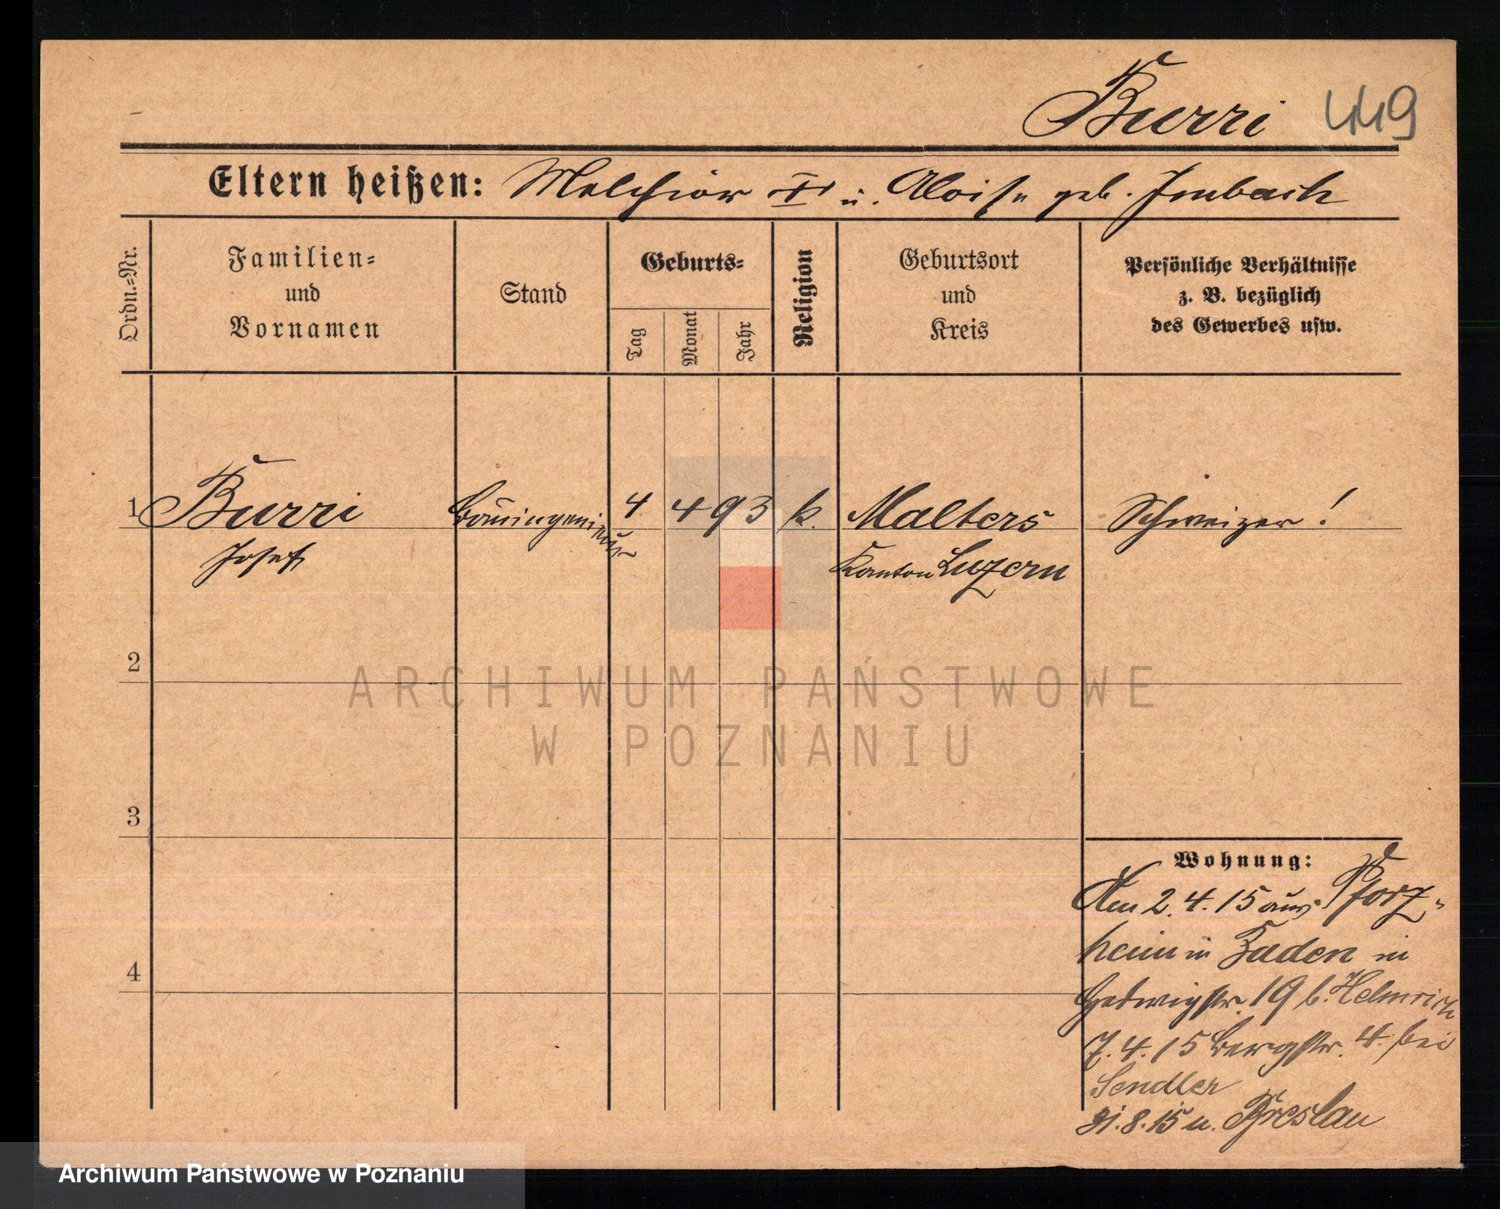 Burri 449
Eltern heißen: Melchior u. Aloise geb. Imbach
Ordn.=Nr.
Familien=
und
Vornamen
Stand
Geburts=
Tag
Monat
Jahr
Religion
Geburtsort
und
Kreis
Persönliche Verhältnisse
z. B. bezüglich
des Gewerbes usw.
1 Burri Bauingenieur 4 4 93 k. Malters Schweizer!
Josef Kanton Luzern
2
ARCHIWUM PAŃSTWOWE
W POZNANIU
3
Wohnung:
Am 2.4.15 aus Pforz-
heim in Baden in
Hedwigstr. 19 b. Helmrich
7.4.15 Bergstr. 4 bei
Sendler
31.8.15 n. Breslau
4
Archiwum Państwowe w Poznaniu